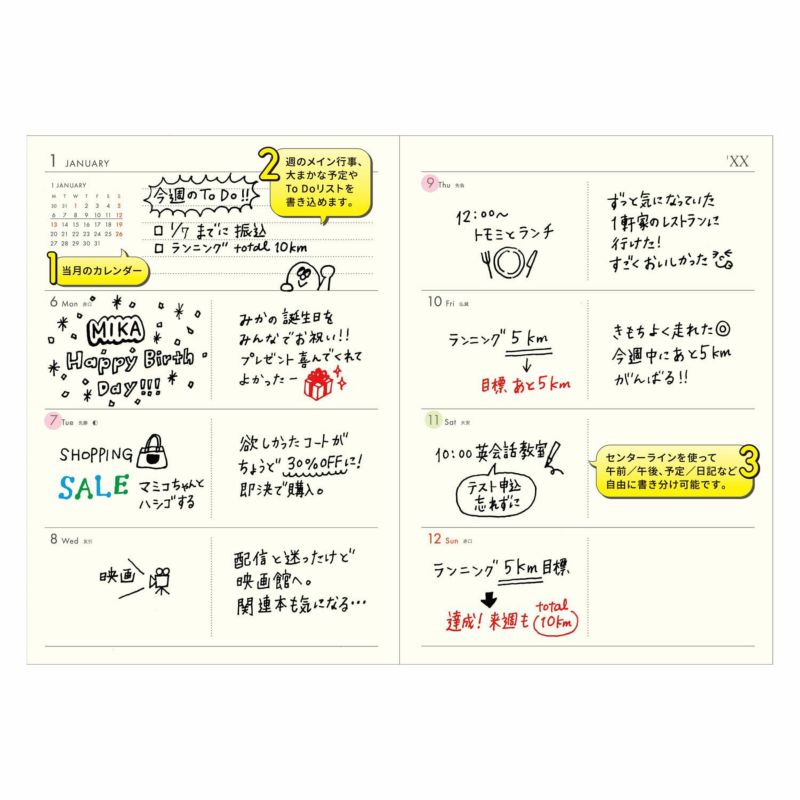 1 JANUARY
1 JANUARY
M T W T F S S
30 31 1 2 3 4 5
6 7 8 9 10 11 12
13 14 15 16 17 18 19
20 21 22 23 24 25 26
27 28 29 30 31
今週のTo Do!!
□ 1/7 までに 振込
□ ランニング total 10km
2
週のメイン行事、
大まかな予定や
To Doリストを
書き込めます。
1
当月のカレンダー
6 Mon 赤口
MIKA
Happy Birth
Day!!!
みかの誕生日を
みんなでお祝い!!
プレゼント喜んでくれて
よかったー
7 Tue 先勝
SHOPPING
SALE
マミコちゃんと
ハシゴする
欲しかったコートが
ちょうど 30%OFFに!
即決で購入。
8 Wed 友引
映画
配信と迷ったけど
映画館へ。
関連本も気になる…
'XX
9 Thu 先負
12:00〜
トモミとランチ
ずっと気になっていた
1軒家のレストランに
行けた!
すごくおいしかった
10 Fri 仏滅
ランニング 5km
目標 あと5km
きもちよく走れた◎
今週中にあと5km
がんばる!!
11 Sat 大安
10:00 英会話教室
テスト申込
忘れずに
センターラインを使って
午前/午後、予定/日記など
自由に書き分け可能です。
3
12 Sun 赤口
ランニング 5km 目標
達成! 来週も total 10km